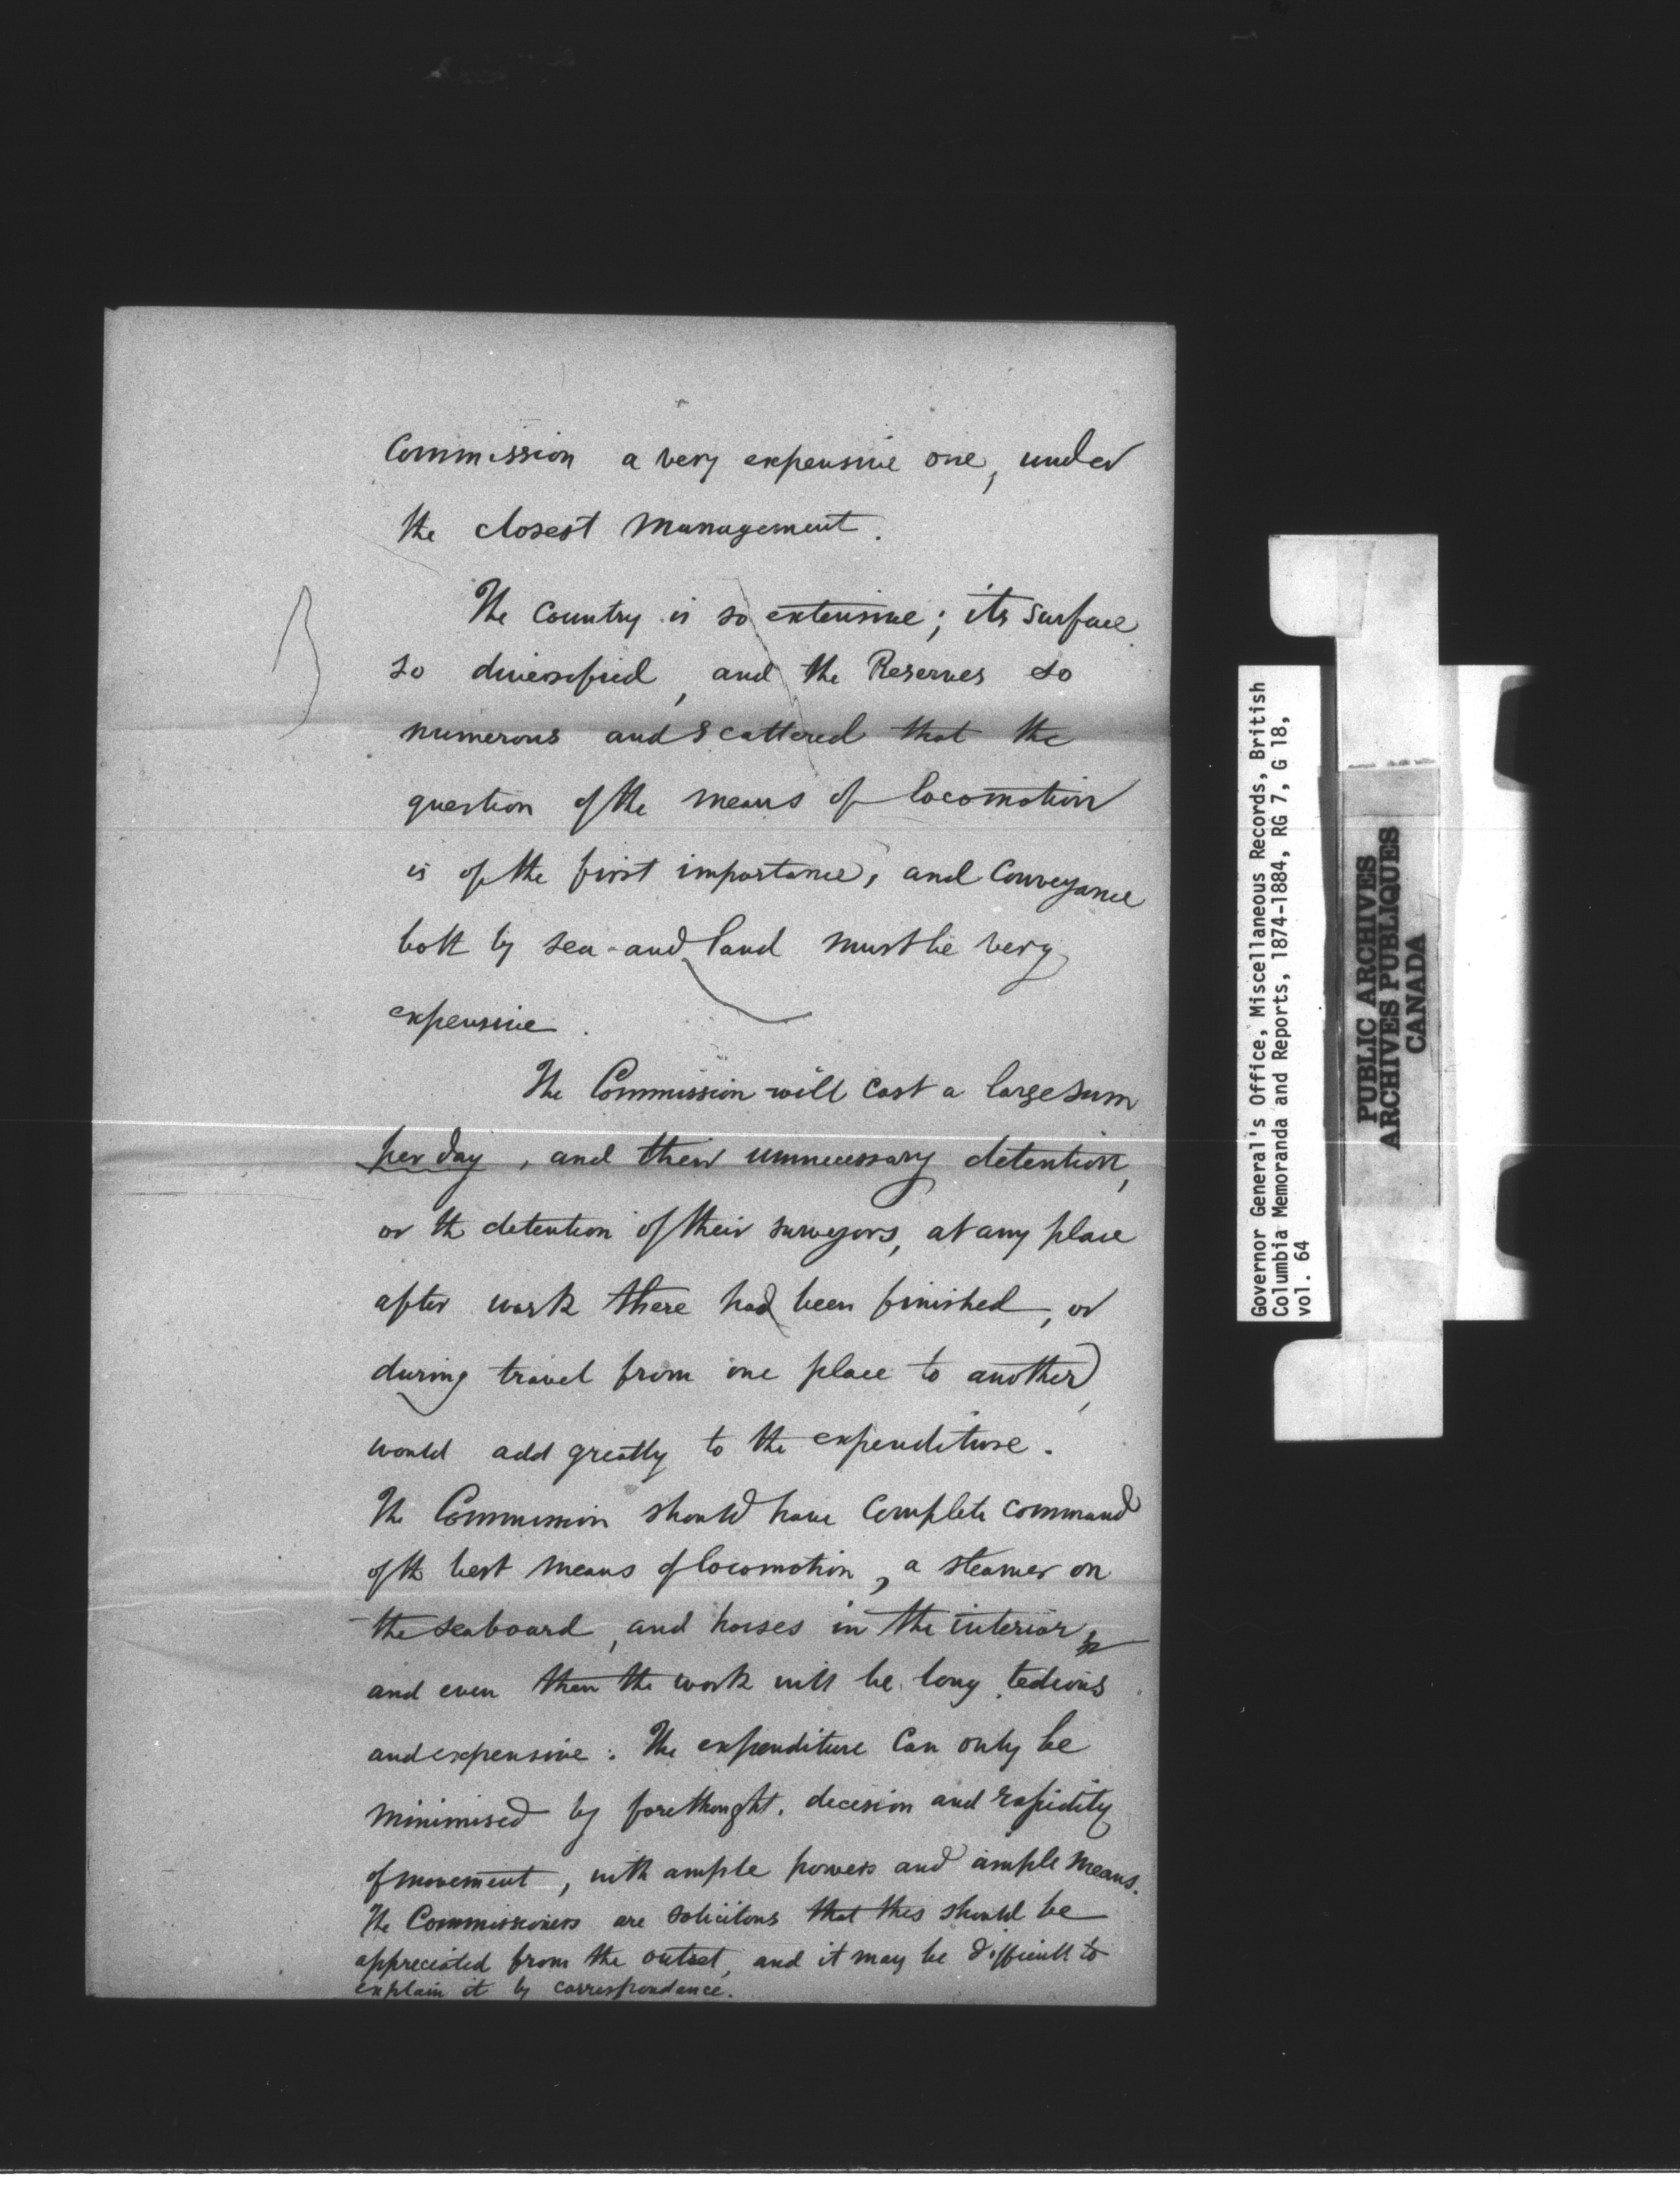 Commission a very expensive one, under
the closest management.
The Country is so extensive; its surface
so diversified, and the Reserves so
numerous and scattered that the
question of the means of locomotion
is of the first importance, and Conveyance
both by sea and land must be very
expensive.
The Commission will cost a large sum
per day, and their unnecessary detention,
or the detention of their surveyors, at any place
after work there had been finished, or
during travel from one place to another,
would add greatly to the expenditure.
The Commission should have Complete command
of the best means of locomotion, a steamer on
the seaboard, and horses in the interior,
and even then the work will be long, tedious
and expensive. The expenditure Can only be
minimised by forethought, decision and rapidity
of movement, with ample powers and ample means.
The Commissioners are solicitous that this should be
appreciated from the outset, and it may be difficult to
explain it by correspondence.
Governor General's Office, Miscellaneous Records, British
Columbia Memoranda and Reports, 1874-1884, RG 7, G 18,
vol. 64
PUBLIC ARCHIVES
ARCHIVES PUBLIQUES
CANADA